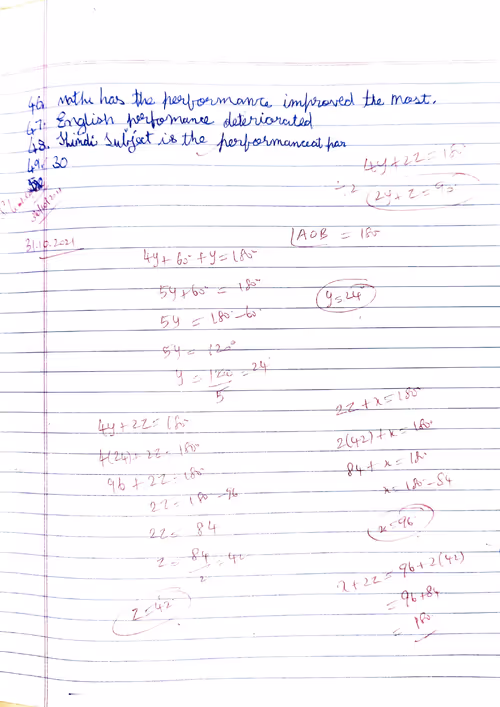 46. Maths has the performance improved the most.
47. English perfomance deteriorated
48. Hindi Subject is the performanceat par
49. 30
4y+2z = 180°
÷ 2
2y+z = 90°
31.10.2021
∠AOB = 180°
4y + 60° + y = 180°
5y+60° = 180°
y=24°
5y = 180°-60°
5y = 120°
y = 120/5 = 24°
4y+2z = 180°
4(24)+2z = 180°
96 + 2z = 180°
2z = 180 - 96
2z = 84
z = 84/2 = 42
z=42°
2z + x = 180°
2(42) + x = 180°
84 + x = 180
x = 180-84
x=96°
x+2z = 96+2(42)
= 96+84
= 180°